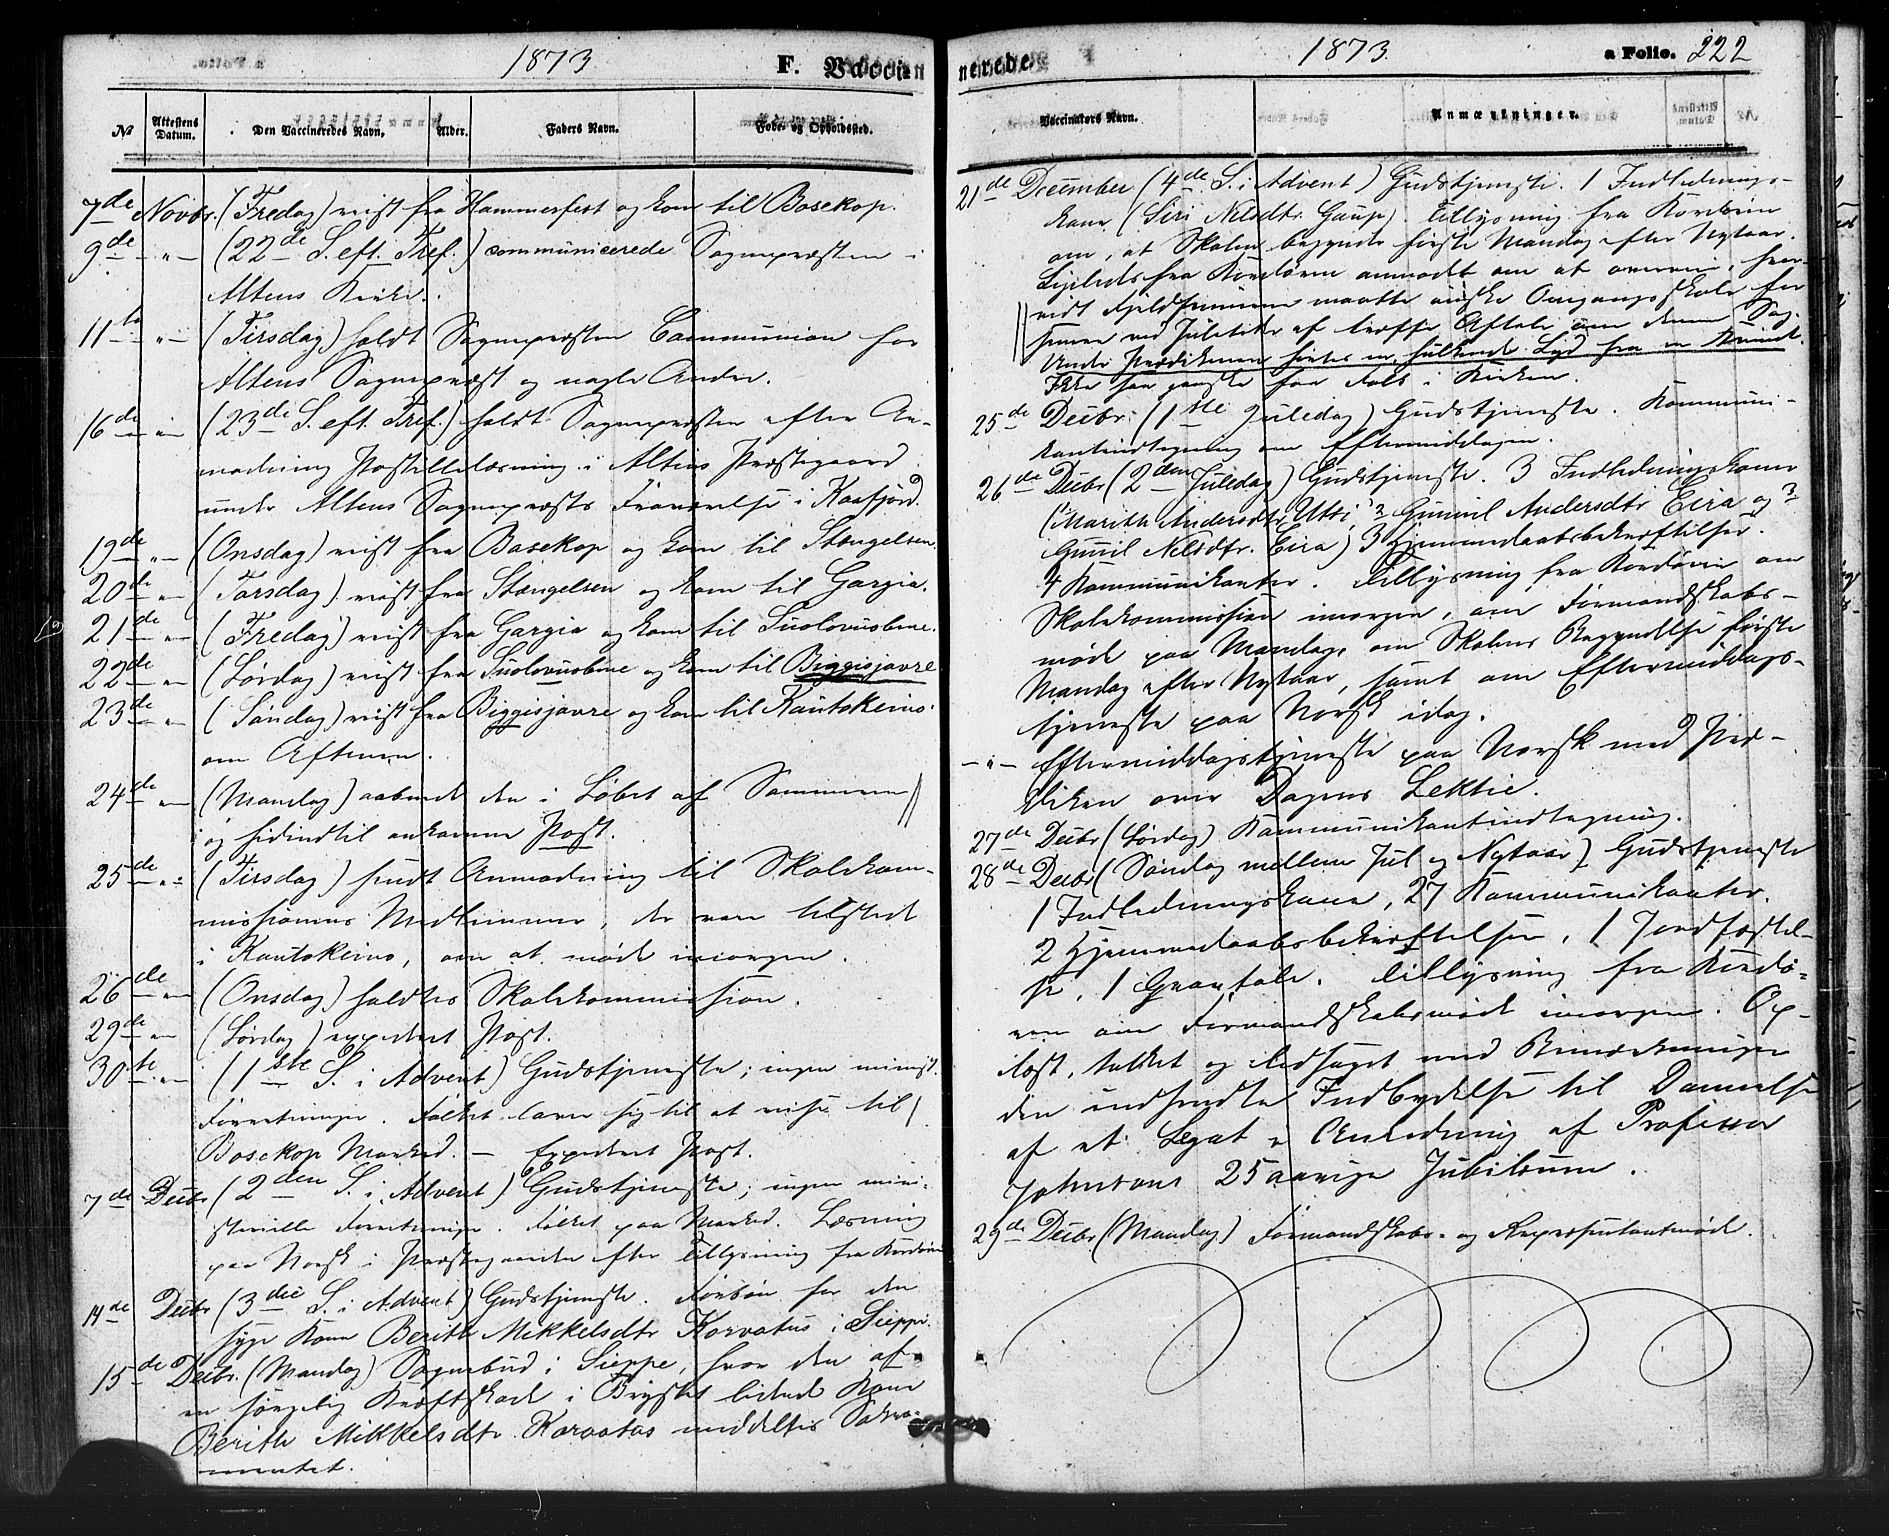 1873
F. Vaccinerede.
1873.
a Folio. 222
No
Attestens Datum.
Den Vaccineredes Navn.
Alder.
Faders Navn.
Føde- og Opholdssted.
Vaccinators Navn.
Anmærkninger.
7de Novbr. (Fredag) reist fra Hammerfest og kom til Bosekop.
9de -"- (22de S. eft. Tref.) communicerede Sognepræsten i
Altens Kirke.
11te -"- (Tirsdag) holdt Sognepræsten Communion for
Altens Sognepræst og nogle Andre.
16de -"- (23de S. eft. Tref.) holdt Sognepræsten efter An-
modning Postillelæsning i Altens Præstegaard
under Altens Sognepræsts Fraværelse i Kaafjord.
19de -"- (Onsdag) reist fra Bosekop og kom til Stængelsen.
20de -"- (Torsdag) reist fra Stængelsen og kom til Gargia.
21de -"- (Fredag) reist fra Gargia og kom til Suolovuobme.
22de -"- (Lørdag) reist fra Suolovuobme og kom til Biggisjavre
23de -"- (Søndag) reist fra Biggisjavre og kom til Kautokeino
om Aftenen.
24de -"- (Mandag) aabnede den i Løbet af Sommeren
og hidindtil ankomne Post.
25de -"- (Tirsdag) sendt Anmodning til Skolekom-
missionens Medlemmer, der vare tilstede
i Kautokeino, om at møde imorgen.
26de -"- (Onsdag) holdtes Skolekommission.
29de -"- (Lørdag) expederet Post.
30te -"- (1ste S. i Advent) Gudstjeneste; ingen minist.
Forretninger. Folket laver sig til at reise til
Bosekop Marked. — Expederet Post.
7de Decbr (2den S. i Advent) Gudstjeneste; ingen mini-
sterielle Forretninger. Folket paa Marked. Læsning
paa Norsk i Præstegaarden efter Tillysning fra Kordøren
14de Decbr (3die S. i Advent) Gudstjeneste. Forbøn for den
syge Kone Berith Mikkelsdtr Korvatus i Sieppe.
15de Decbr. (Mandag) Sognebud i Sieppe, hvor den af
en sørgelig Kræftskade i Brystet lidende Kone
Berith Mikkelsdtr. Korvatus meddeltes Sakra-
mentet.
21de December (4de S. i Advent) Gudstjeneste. 1 Indlednings-
kone (Siri Nilsdtr. Gaup). Tillysning fra Kordøren
om, at Skolen begynder første Mandag efter Nytaar.
Ligeledes fra Kordøren anmodet om at overveie, hvor-
vidt Fjeldfinnerne maatte ønske Omgangsskole for
senere ved Juletider at træffe Aftale om denne Sag.
Under Prædikenen hørtes en hulkende Lyd fra en Kvinde.
Ikke saa ganske faa Folk i Kirken.
25de Decbr. (1ste Juledag) Gudstjeneste. Kommuni-
kantindtegning om Eftermiddagen.
26de Decbr (2den Juledag) Gudstjeneste. 3 Indledningskoner
(Marith Andersdtr Utsi, 2 Gunnil Andersdtr Eira og 3
Gunil Nilsdtr. Eira) 3 Hjemmedaabsbekræftelser.
4 Kommunikanter. Tillysning fra Kordøren om
Skolekommission imorgen, om Formandskabs-
møde paa Mandag, om Skolens Begyndelse første
Mandag efter Nytaar, samt om Eftermiddags-
tjeneste paa Norsk idag.
-"- Eftermiddagstjeneste paa Norsk med Præ-
diken over Dagens Lektie.
27de Decbr (Lørdag) Kommunikantindtegning.
28de Decbr (Søndag mellem Jul og Nytaar) Gudstjeneste
1 Indledningskone, 27 Kommunikanter.
2 Hjemmedaabsbekræftelser, 1 Jordfæstel-
se, 1 Gravtale. Tillysning fra Kordø-
ren om Formandskabsmøde imorgen. Op-
læst, tolket og ledsaget med Bemærkninger
den indsendte Indbydelse til Dannelse
af et Legat i Anledning af Professor
Johnsons 25 aarige Jubilæum.
29de Decbr. (Mandag) Formandskabs- og Repræsentantmøde.